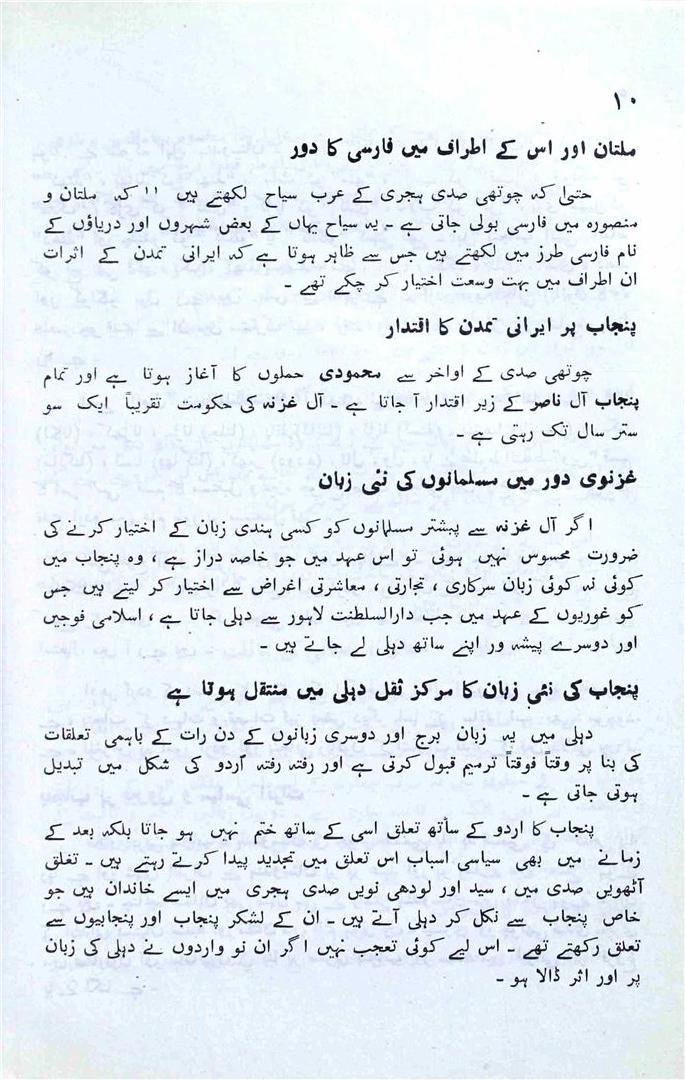 ۱۰
ملتان اور اس کے اطراف میں فارسی کا دور
حتیٰ کہ چوتھی صدی ہجری کے عرب سیاح لکھتے ہیں '' کہ ملتان و
منصورہ میں فارسی بولی جاتی ہے ۔ یہ سیاح یہاں کے بعض شہروں اور دریاؤں کے
نام فارسی طرز میں لکھتے ہیں جس سے ظاہر ہوتا ہے کہ ایرانی تمدن کے اثرات
ان اطراف میں بہت وسعت اختیار کر چکے تھے ۔
پنجاب پر ایرانی تمدن کا اقتدار
چوتھی صدی کے اواخر سے محمودی حملوں کا آغاز ہوتا ہے اور تمام
پنجاب آل ناصر کے زیر اقتدار آ جاتا ہے ۔ آل غزنہ کی حکومت تقریباً ایک سو
ستر سال تک رہتی ہے ۔
غزنوی دور میں مسلمانوں کی نئی زبان
اگر آل غزنہ سے پیشتر مسلمانوں کو کسی ہندی زبان کے اختیار کرنے کی
ضرورت محسوس نہیں ہوئی تو اس عہد میں جو خاصہ دراز ہے ، وہ پنجاب میں
کوئی نہ کوئی زبان سرکاری ، تجارتی ، معاشرتی اغراض سے اختیار کر لیتے ہیں جس
کو غوریوں کے عہد میں جب دارالسلطنت لاہور سے دہلی جاتا ہے ، اسلامی فوجیں
اور دوسرے پیشہ ور اپنے ساتھ دہلی لے جاتے ہیں ۔
پنجاب کی نئی زبان کا مرکز ثقل دہلی میں منتقل ہوتا ہے
دہلی میں یہ زبان برج اور دوسری زبانوں کے دن رات کے باہمی تعلقات
کی بنا پر وقتاً فوقتاً ترمیم قبول کرتی ہے اور رفتہ رفتہ اردو کی شکل میں تبدیل
ہوتی جاتی ہے ۔
پنجاب کا اردو کے ساتھ تعلق اسی کے ساتھ ختم نہیں ہو جاتا بلکہ بعد کے
زمانے میں بھی سیاسی اسباب اس تعلق میں تجدید پیدا کرتے رہتے ہیں ۔ تغلق
آٹھویں صدی میں ، سید اور لودھی نویں صدی ہجری میں ایسے خاندان ہیں جو
خاص پنجاب سے نکل کر دہلی آتے ہیں ۔ ان کے لشکر پنجاب اور پنجابیوں سے
تعلق رکھتے تھے ۔ اس لیے کوئی تعجب نہیں اگر ان نو واردوں نے دہلی کی زبان
پر اور اثر ڈالا ہو ۔